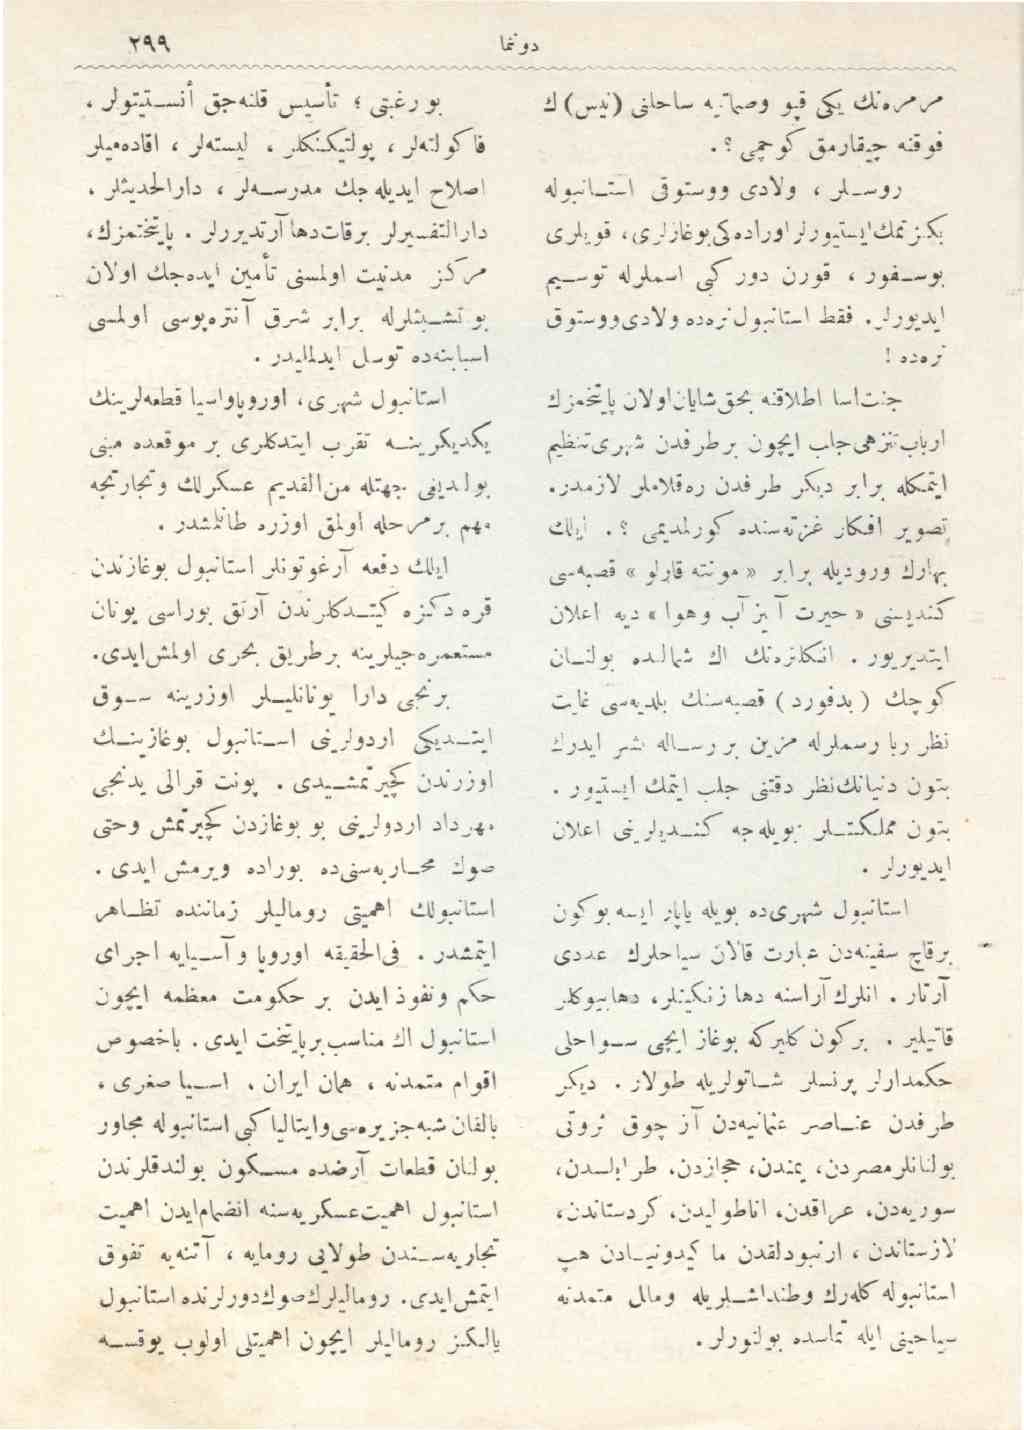 دوننما
٢٩٩
مرمره‌نك یكی قپو وصماتیه ساحلنی (نیس) ك
فوقنه چیقارمق كوجمی؟ .
روسلر ، ولادی ووستوقی استانبوله
بكزتمك‌ایستیورلر اوراده‌كی بوغازلری، قویلری
بوسفور ، قورن دور كبی اسملرله توسیم
ایدیورلر. فقط استانبول نره‌ده ولادی‌ووستوق
نره‌ده !
جنت‌اسا اطلاقنه بحق‌شایان‌اولان پایتختمزك
ارباب‌تنزهی‌جلب ایچون برطرفدن شهری‌تنظیم
ایتمكله برابر دیكر طرفدن ره‌قلاملر لازمدر.
تصویر افكار غزته‌سنده كورلمدیمی ؟ . ایلك
بهارك ورودیله برابر « مونته قارلو » قصبه‌سی
كندیسنی « حیرت آمیز آب وهوا » دیه اعلان
ایتدیریور . انكلتره‌نك اك شمالنده بولنان
كوچك ( بدفورد ) قصبه‌سنك بلدیه‌سی غایت
نظر ربا رسملرله مزین بر رساله نشر ایدرك
بتون دنیانك‌نظر دقتنی جلب ایتمك ایستیور .
بتون مملكتلر بویله‌جه كندیلرینی اعلان
ایدیورلر .
استانبول شهری‌ده بویله یاپار ایسه بوكون
برقاچ سفینه‌دن عبارت قالان سیاحلرك عددی
آرتار . انلرك آراسنه دها زنكینلر، دها بیوكلر
قاتیلیر . بركون كلیركه بوغاز ایچی سواحلی
حكمدارلر پرنسلر شاتولریله طولار . دیكر
طرفدن عناصر عثمانیه‌دن آز چوق ثروتی
بولنانلرمصردن، یمندن، حجازدن، طرابلسدن،
سوریه‌دن، عراقدن، اناطولیدن، كردستاندن،
لازستاندن ، ارنبودلقدن ماكیدونیادن هپ
استانبوله كله‌رك وطنداشلریله وملل متمدنه
سیاحینی ایله تماسده بولنورلر.
بورغبتی ؛ تأسیس قلنه‌جق أنستیتولر ،
فاكولته‌لر ، پولتیكنكلر ، لیسه‌لر ، اقاده‌میلر
اصلاح ایدیله‌جك مدرسه‌لر ، دارالحدیثلر .
دارالتفسیرلر برقات‌دها آرتدیررلر . پایتختمزك،
مركز مدنیت اولمسنی تأمین ایده‌جك اولان
بو تشبثلرله برابر شرق آنتره‌پوسی اولمسی
اسبابنه‌ده توسل ایدلملیدر .
استانبول شهری، اوروپاواسیا قطعه‌لرینك
یكدیكرینه تقرب ایتدكلری بر موقعده مبنی
بولندیغی جهتله من‌القدیم عسكرلك وتجارتجه
مهم برمرحله اولمق اوزره طانلمشدر .
ایلك دفعه آرغوتونلر استانبول بوغازندن
قره دكزه كیتدكلرندن آرتق بوراسی یونان
مستعمره‌جیلرینه برطریق بحری اولمش‌ایدی.
برنجی دارا یونانلیلر اوزرینه سوق
ایتدیكی اردولرینی استانبول بوغازینك
اوزرندن كچیرتمشیدی . پونت قرالی یدنجی
مهرداد اردولرینی بو بوغازدن كچیرتمش وحتی
صوك محاربه‌سنی‌ده بوراده ویرمش ایدی .
استانبولك اهمیتی رومالیلر زماننده تظاهر
ایتمشدر . فی‌الحقیقه اوروپا و آسیایه اجرای
حكم ونفوذ ایدن بر حكومت معظمه ایچون
استانبول اك مناسب‌برپایتخت ایدی . باخصوص
اقوام متمدنه ، همان ایران ، اسیا صغری ،
بالقان شبه‌جزیره‌سی‌وایتالیا كبی استانبوله مجاور
بولنان قطعات آرضده مسكون بولندقلرندن
استانبول اهمیت‌عسكریه‌سنه انضمام‌ایدن اهمیت
تجاریه‌سندن طولایی رومایه ، آتنه‌یه تفوق
ایتمش‌ایدی. رومالیلرك‌صوك‌دورلرنده استانبول
یالكز رومالیلر ایچون اهمیتلی اولوب یوقسه